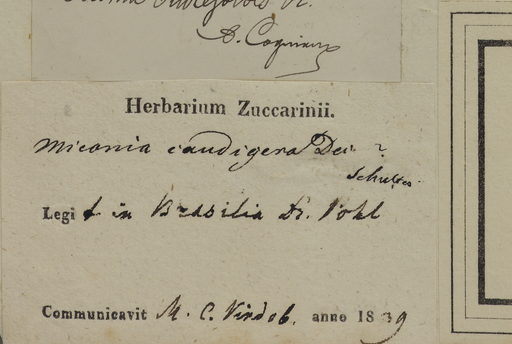 A. Cogniaux
Herbarium Zuccarinii.
Miconia caudigera Dec. ?
Schultes
Legit in Brasilia Dr. Pohl
Communicavit M. C. Vindob. anno 1839